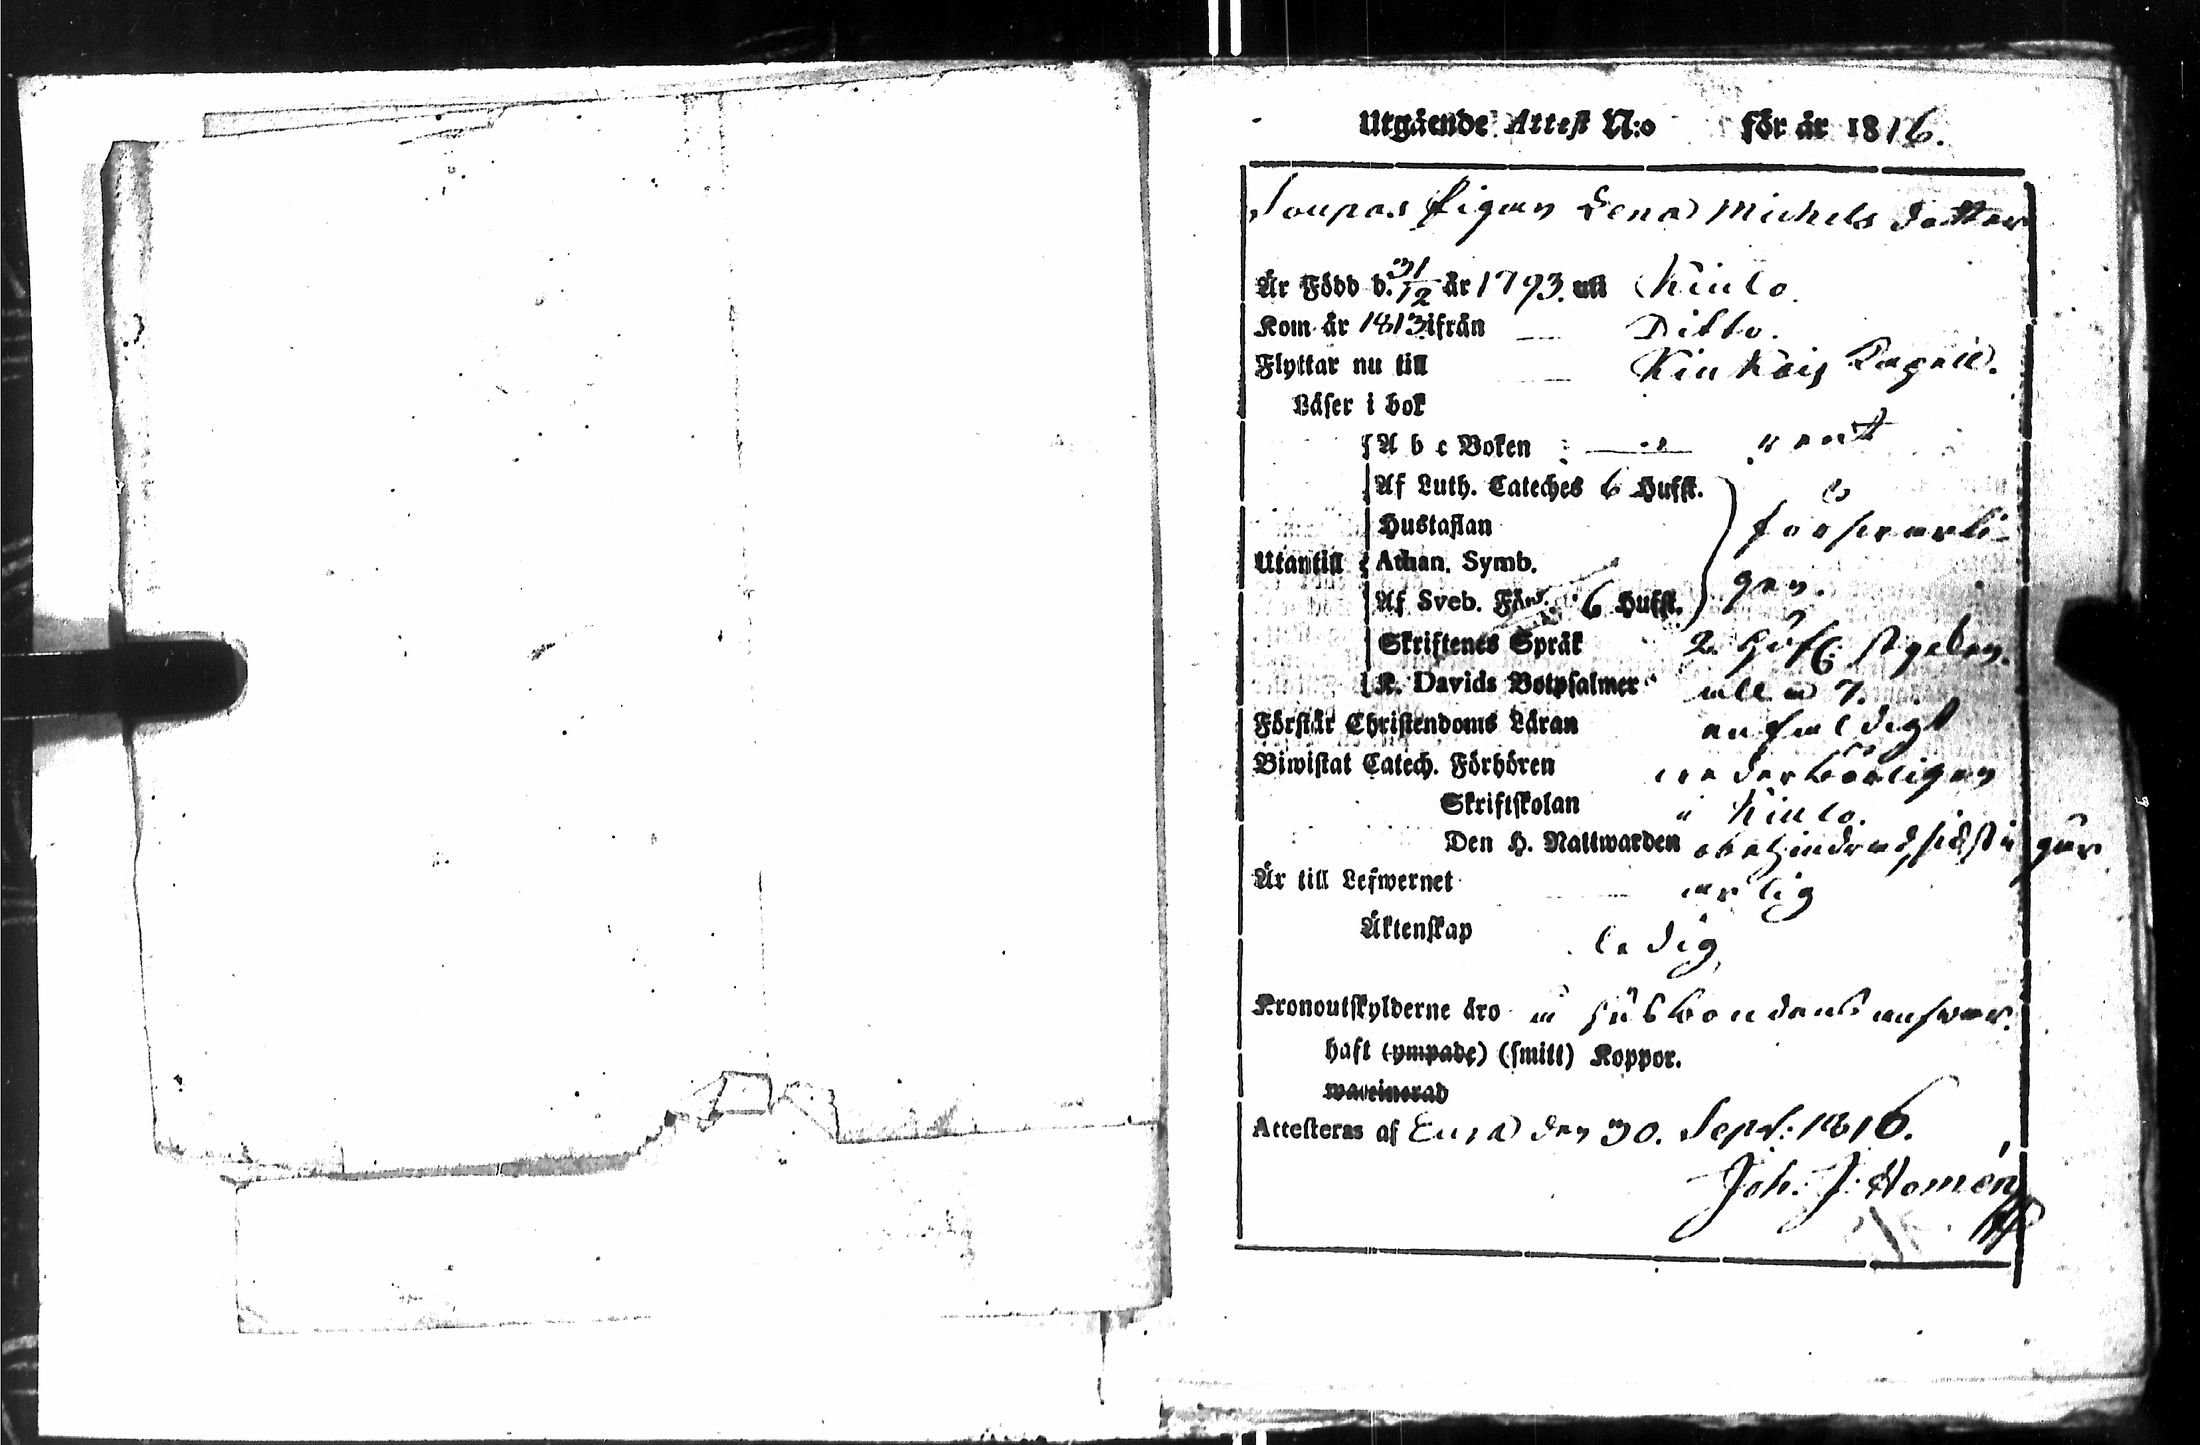 Utgående Attest N:o för år 1816.
Pigan Lena Michels dotter
Är Född d. 31/12 år 1793. uti Kiulo.
Kom år 1813 ifrån Ditto.
Flyttar nu till Kiukais Capell.
Läser i bok
A b c Boken rent
Af Luth. Cateches 6 Hufst.
Hustaflan försvarli-
Utantill Athan. Symb.
gen.
Af Sveb. Förkl. 6 Hufst.
Skriftenes Språk 2. Hufv: stycken.
K. Davids Botpsalmer alla 7.
Förstår Christendoms Läran enfaldigt
Biwistat Catech. Förhören wederbörligen
Skriftskolan i Kiulo.
Den H. Nattwarden obehindrad,
Är till Lefwernet ärlig
Äktenskap ledig
Kronoutskylderne äro i husbondens answar.
haft (ympade) (smitt) Koppor.
waccinerad
Attesteras af Eura den 30. Sept: 1816.
Joh. J. Homén